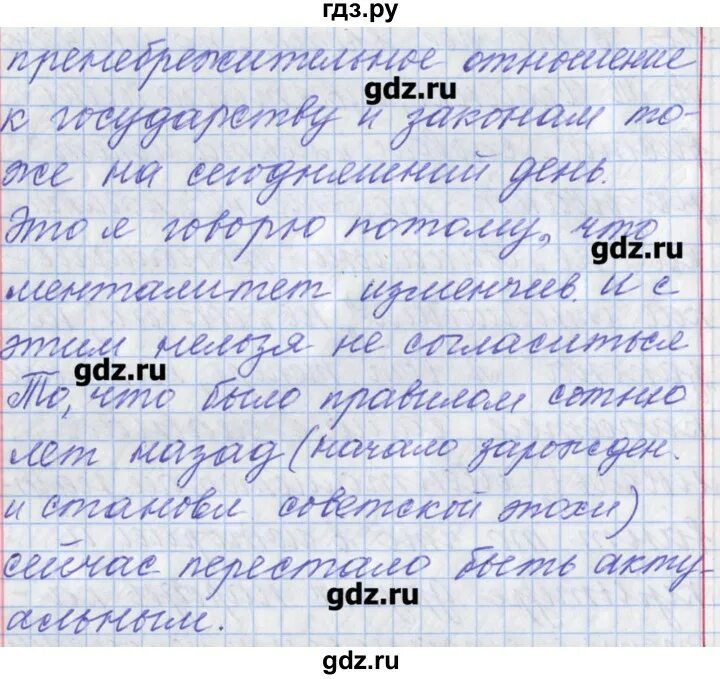 гдз.ру
пренебрежительное отношение
gdz.ru
к государству и законам то-
же на сегодняшний день.
Это я говорю потому, что
gdz.ru
менталитет изменчив. И с
этим нельзя не согласиться
gdz.ru
То, что было правилом сотню
лет назад (начало зарожден.
и становл советской эпохи)
сейчас перестало быть акту-
gdz.ru
альным.
gdz.ru